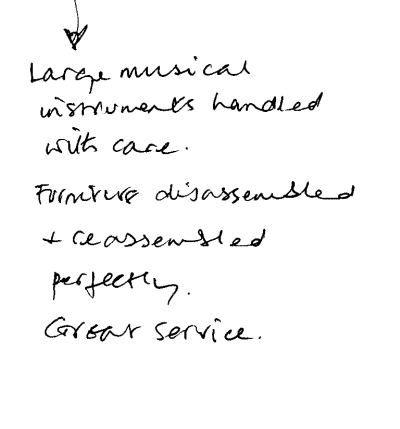 Large musical
instruments handled
with care.
Furniture disassembled
+ reassembled
perfectly.
Great service.